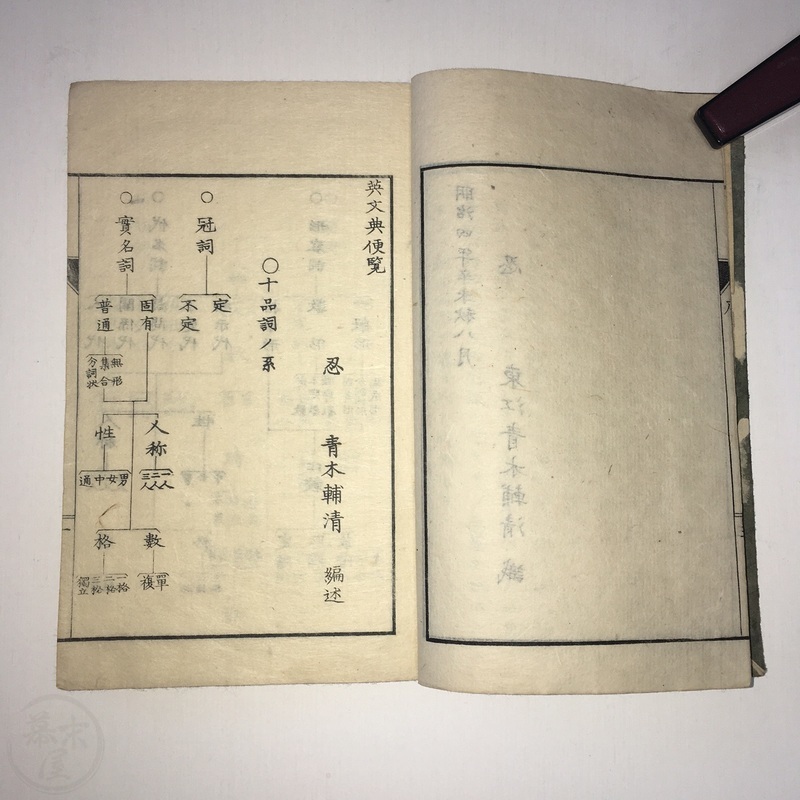 英文典便覧
忍 青木輔清 編述
○十品詞ノ系
○冠詞
定
不定
○實名詞
固有
普通
無形
集合
分詞状
人称
一人
二人
三人
性
男
女
中
通
數
單
複
格
一格
二格
三格
獨立
幕末屋